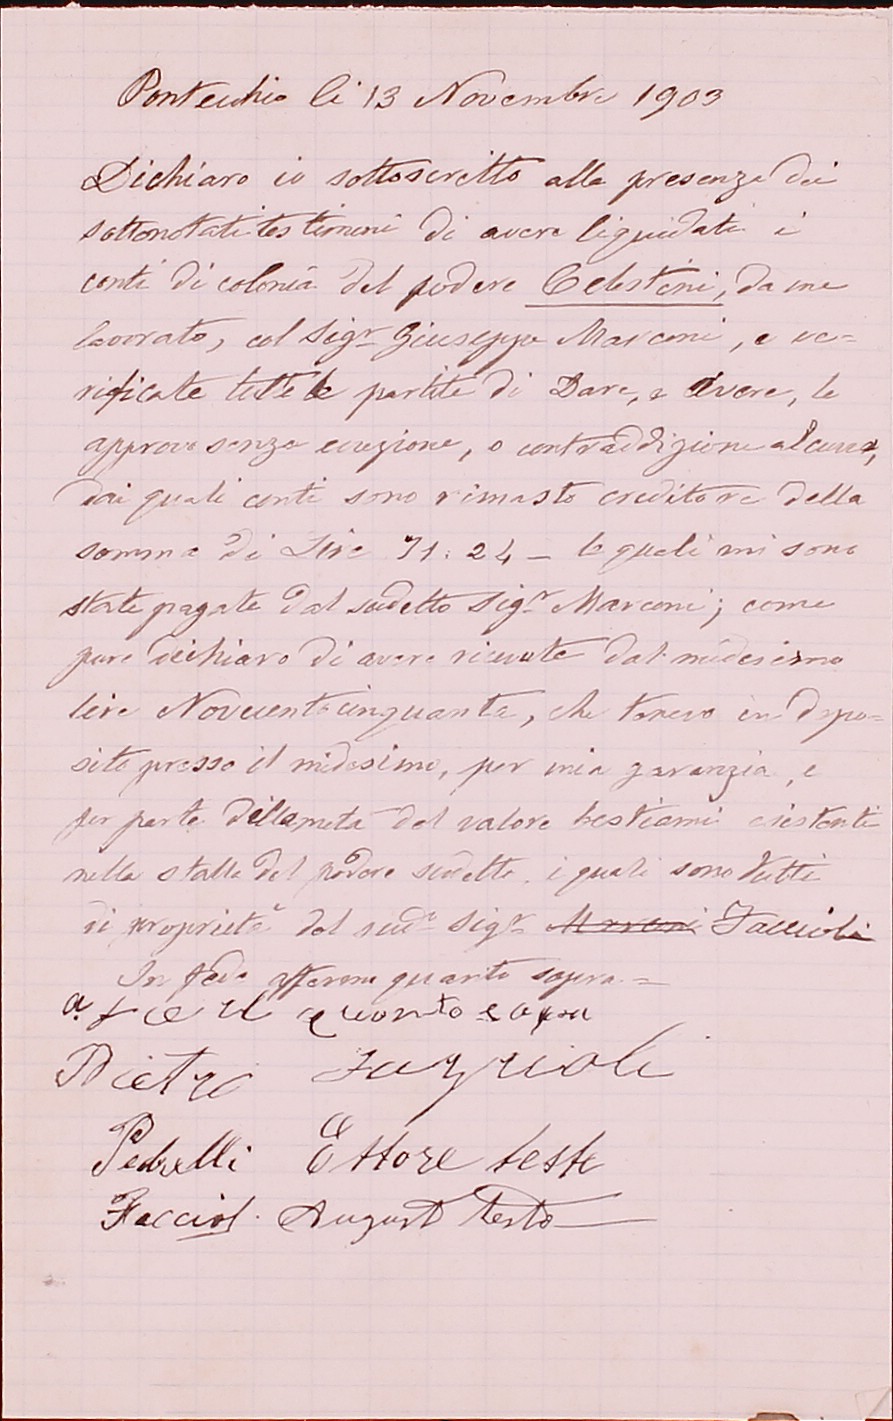 Pontecchio li 13 Novembre 1903
Dichiaro io sottoscritto alla presenza dei
sottonotati testimoni di avere liquidati i
conti di colonia del podere Celestini, da me
lavorato, col Sigr Giuseppe Marconi, e ve=
rificate tutte le partite di Dare, e Avere, le
approvo senza eccezione, o contraddizione alcuna,
dai quali conti sono rimasto creditore della
somma di Lire 71:24 – le quali mi sono
state pagate dal sudetto Sigr Marconi; come
pure dichiaro di avere ricevute dal medesimo
lire Novecentocinquanta, che tenevo in depo=
sito presso il medesimo, per mia garanzia, e
per parte della metà del valore bestiami esistenti
nella stalla del podere sudetto, i quali sono tutti
di proprietà del sudo Sigr Marconi Faccioli
In fede affermo quanto sopra.=
quanto sopra
Pietro Fazzioli
Pedrelli Ettore teste
Facciol. August testo